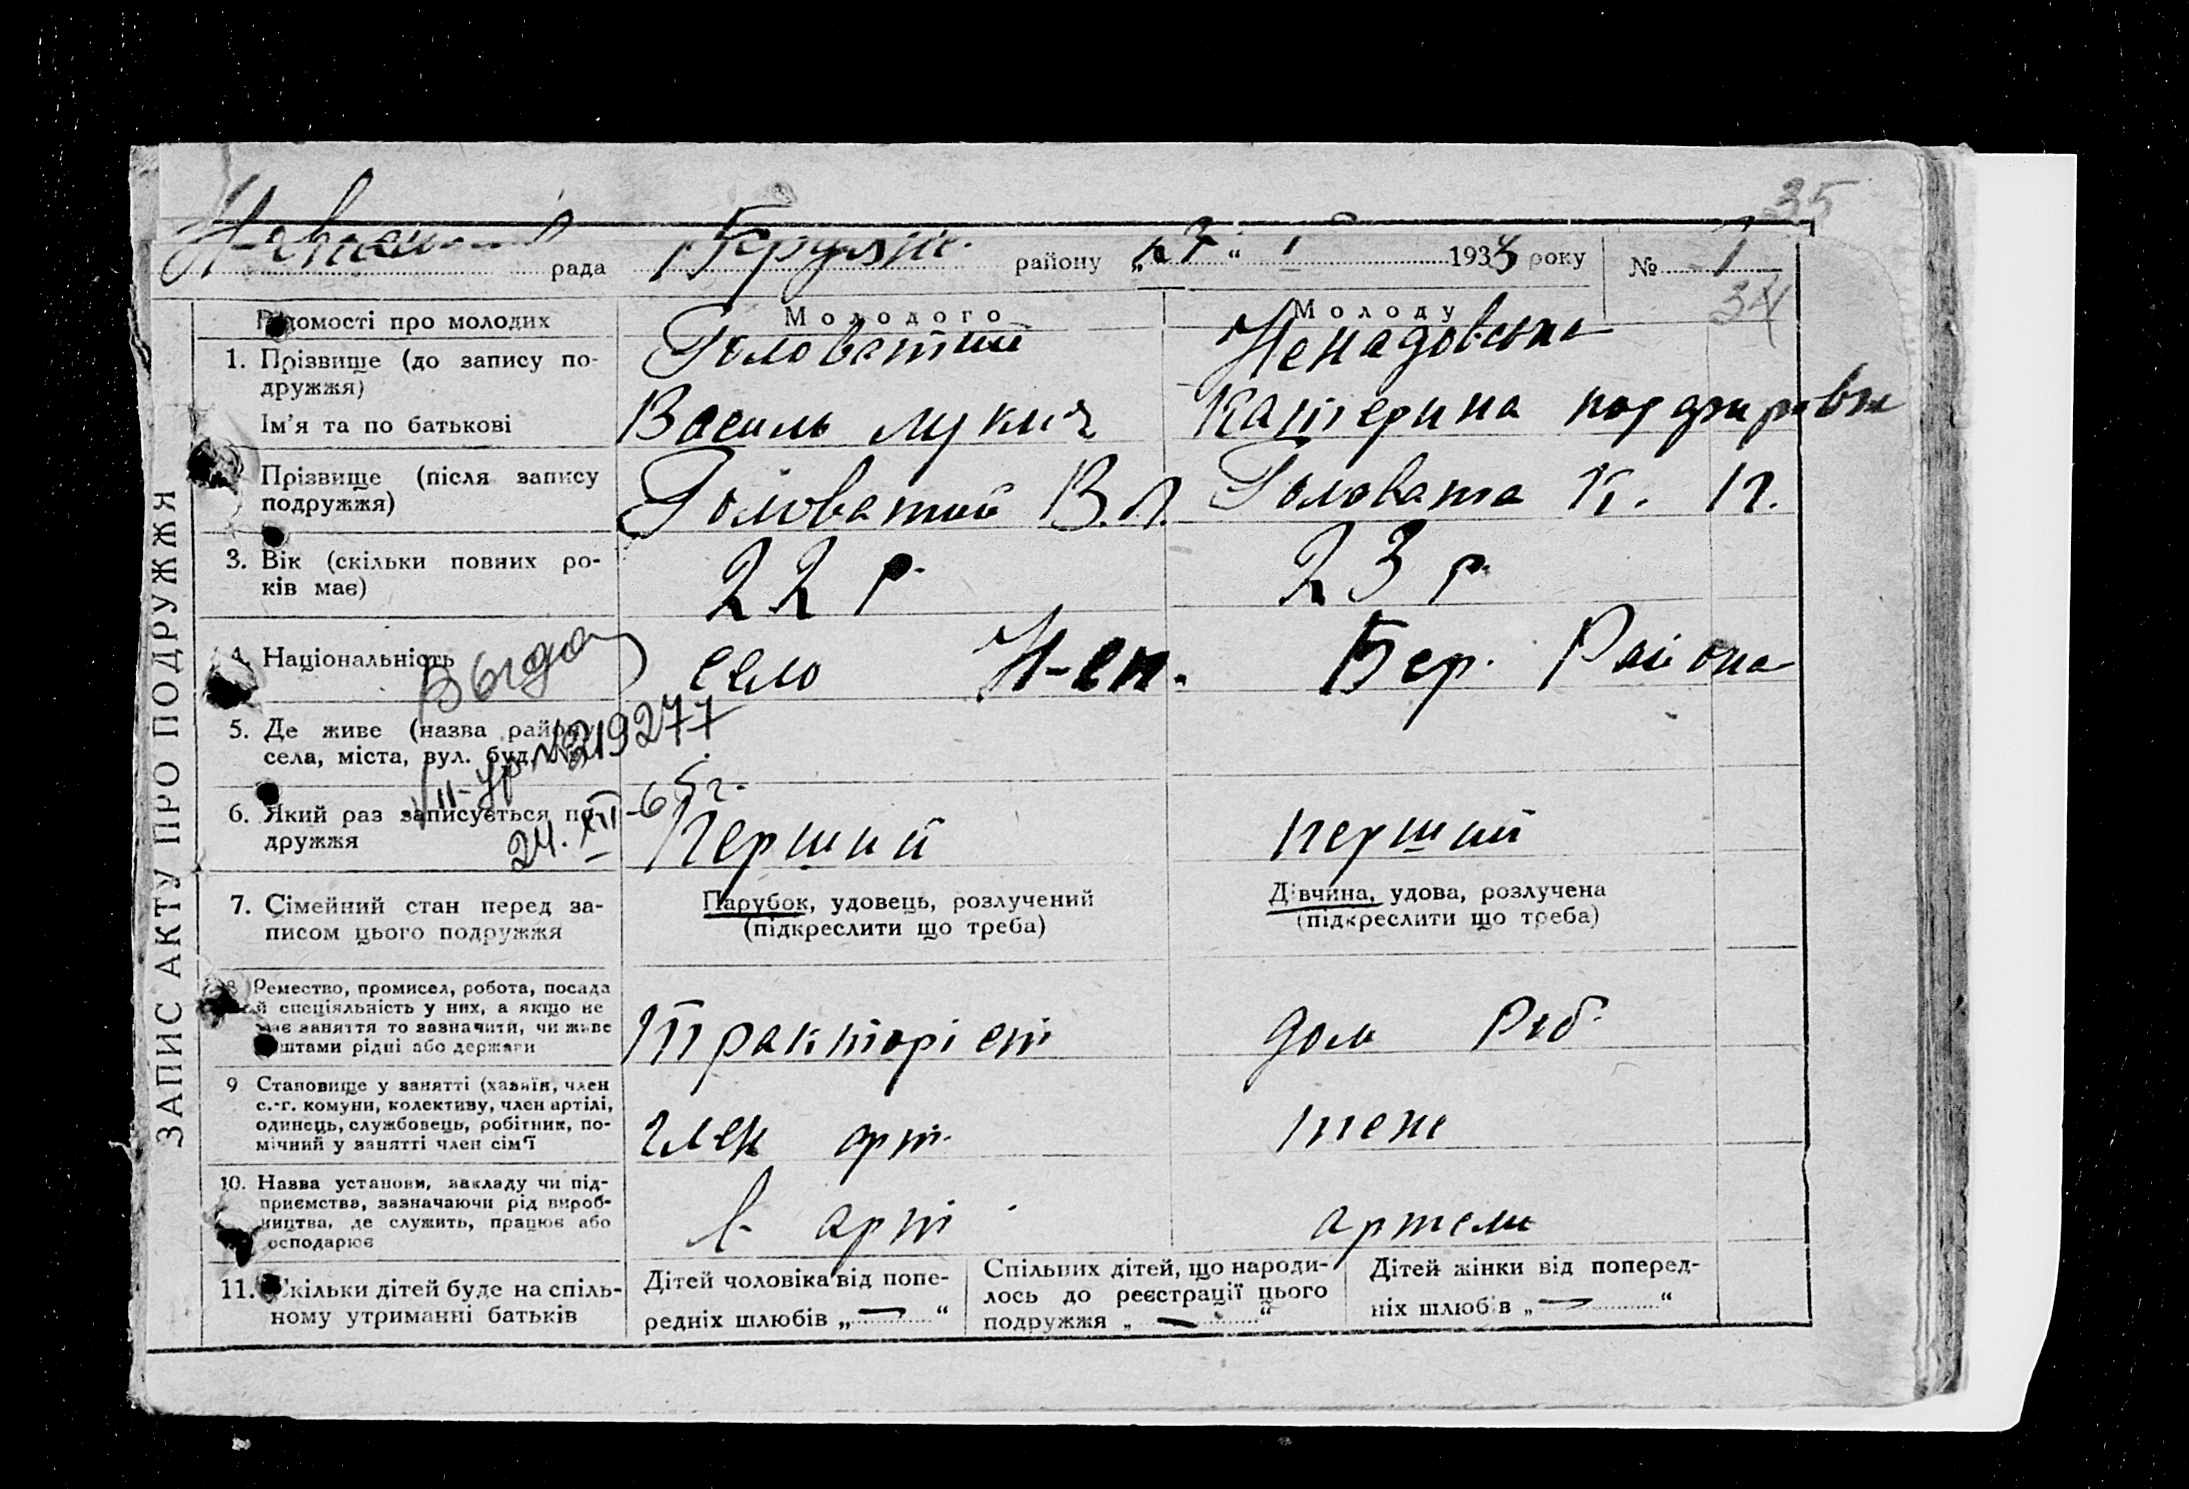 35
рада района „27“ I 1933 року № 1
34
ЗАПИС АКТУ ПРО ПОДРУЖЖЯ
Відомості про молодих Молодого Молоду
1. Прізвище (до запису по-
дружжя)
Головатий Ненадовська
Ім'я та по батькові
Василь Лукич Катерина
Прізвище (після запису
подружжя)
Головатий В.Л. Головата К. П.
3. Вік (скільки повних ро-
ків має)
22 р. 23 р.
4. Національність
село Н-сп. Бер. Района
Выдан
5. Де живе (назва району,
села, міста, вул. буд.
VII-УР №219277
24. XII-65г.
6. Який раз записується по-
дружжя
Перший перший
7. Сімейний стан перед за-
писом цього подружжя
Парубок, удовець, розлучений
(підкреслити що треба)
Дівчина, удова, розлучена
(підкреслити що треба)
8. Ремество, промисел, робота, посада
й спеціяльність у них, а якщо не
має заняття то зазначити, чи живе
коштами рідні або держави
Тракторіст дом Роб.
9 Становище у занятті (хазяїн, член
с.-г. комуни, колективу, член артілі,
одинець, службовець, робітник, по-
мічний у занятті член сім'ї
член арт. теж
10. Назва установи, закладу чи під-
приємства, зазначаючи рід вироб-
ництва, де служить, працює або
господарює
в арт. артели
11. Скільки дітей буде на спіль-
ному утриманні батьків
Дітей чоловіка від попе-
редніх шлюбів „ — “
Спільних дітей, що народи-
лось до реєстрації цього
подружжя „ — “
Дітей жінки від поперед-
ніх шлюбів „ — “